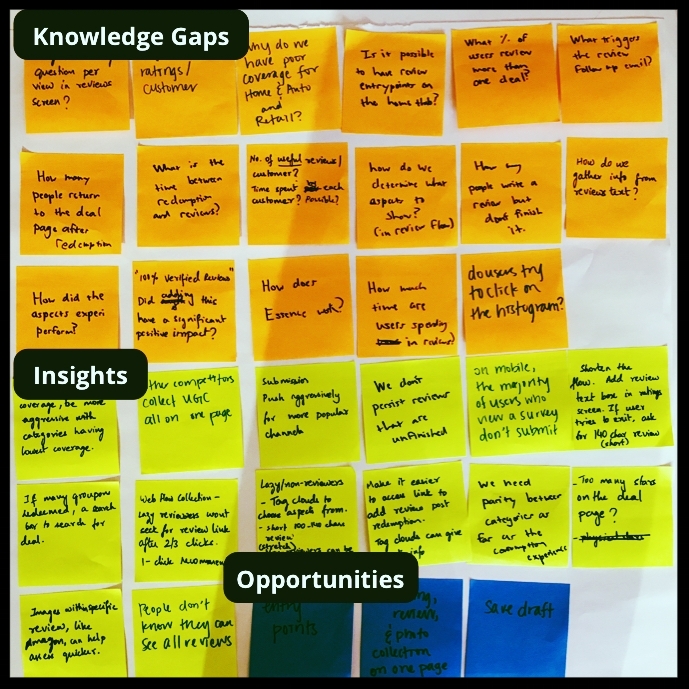 Knowledge Gaps
question per
view in reviews
screen?
ratings/
customer
why do we
have poor
coverage for
Home & Auto
and
Retail?
Is it possible
to have review
entrypoints on
the home tab?
What % of
users review
more than
one deal?
What triggers
the review
follow up email?
How many
people return
to the deal
page after
redemption
What is the
time between
redemption
and reviews?
No. of useful reviews/
customer?
Time spent each
customer? Possible?
how do we
determine what
aspects to
show?
(in review flow)
How many
people write a
review but
don't finish
it.
How do we
gather info from
reviews text?
How did the
aspects experi
perform?
"100% verified Reviews"
Did adding this
have a significant
positive impact?
How does
Essence work?
How much
time are
users spending
in reviews?
do users try
to click on
the histogram?
Insights
coverage, be more
aggressive with
categories having
lowest coverage.
the competitors
collect UGC
all on one page
Submission
Push aggressively
for more popular
channels
We don't
persist reviews
that are
unfinished
on mobile,
the majority
of users who
view a survey
don't submit
Shorten the
flow. Add review
text box in ratings
screen. If user
tries to exit, ask
for 140 char review
(short)
If many groupon
redeemed, a search
bar to search for
deal.
Web flow collection -
lazy reviewers wont
seek for review link
after 2/3 clicks.
1-click
Lazy/non-reviewers
- Tag clouds to
choose aspects from.
- short 100-140 chars
review
can be
Make it easier
to access link to
add reviews post
redemption.
Tag clouds can give
info
We need
parity between
categories as
far as the
consumption
experience
- Too many stars
on the deal
page?
Opportunities
Images within specific
review, like
Amazon, can help
assess quicker.
People don't
know they can
see all reviews
entry
points
review,
& photo
collection
on one page
Save draft